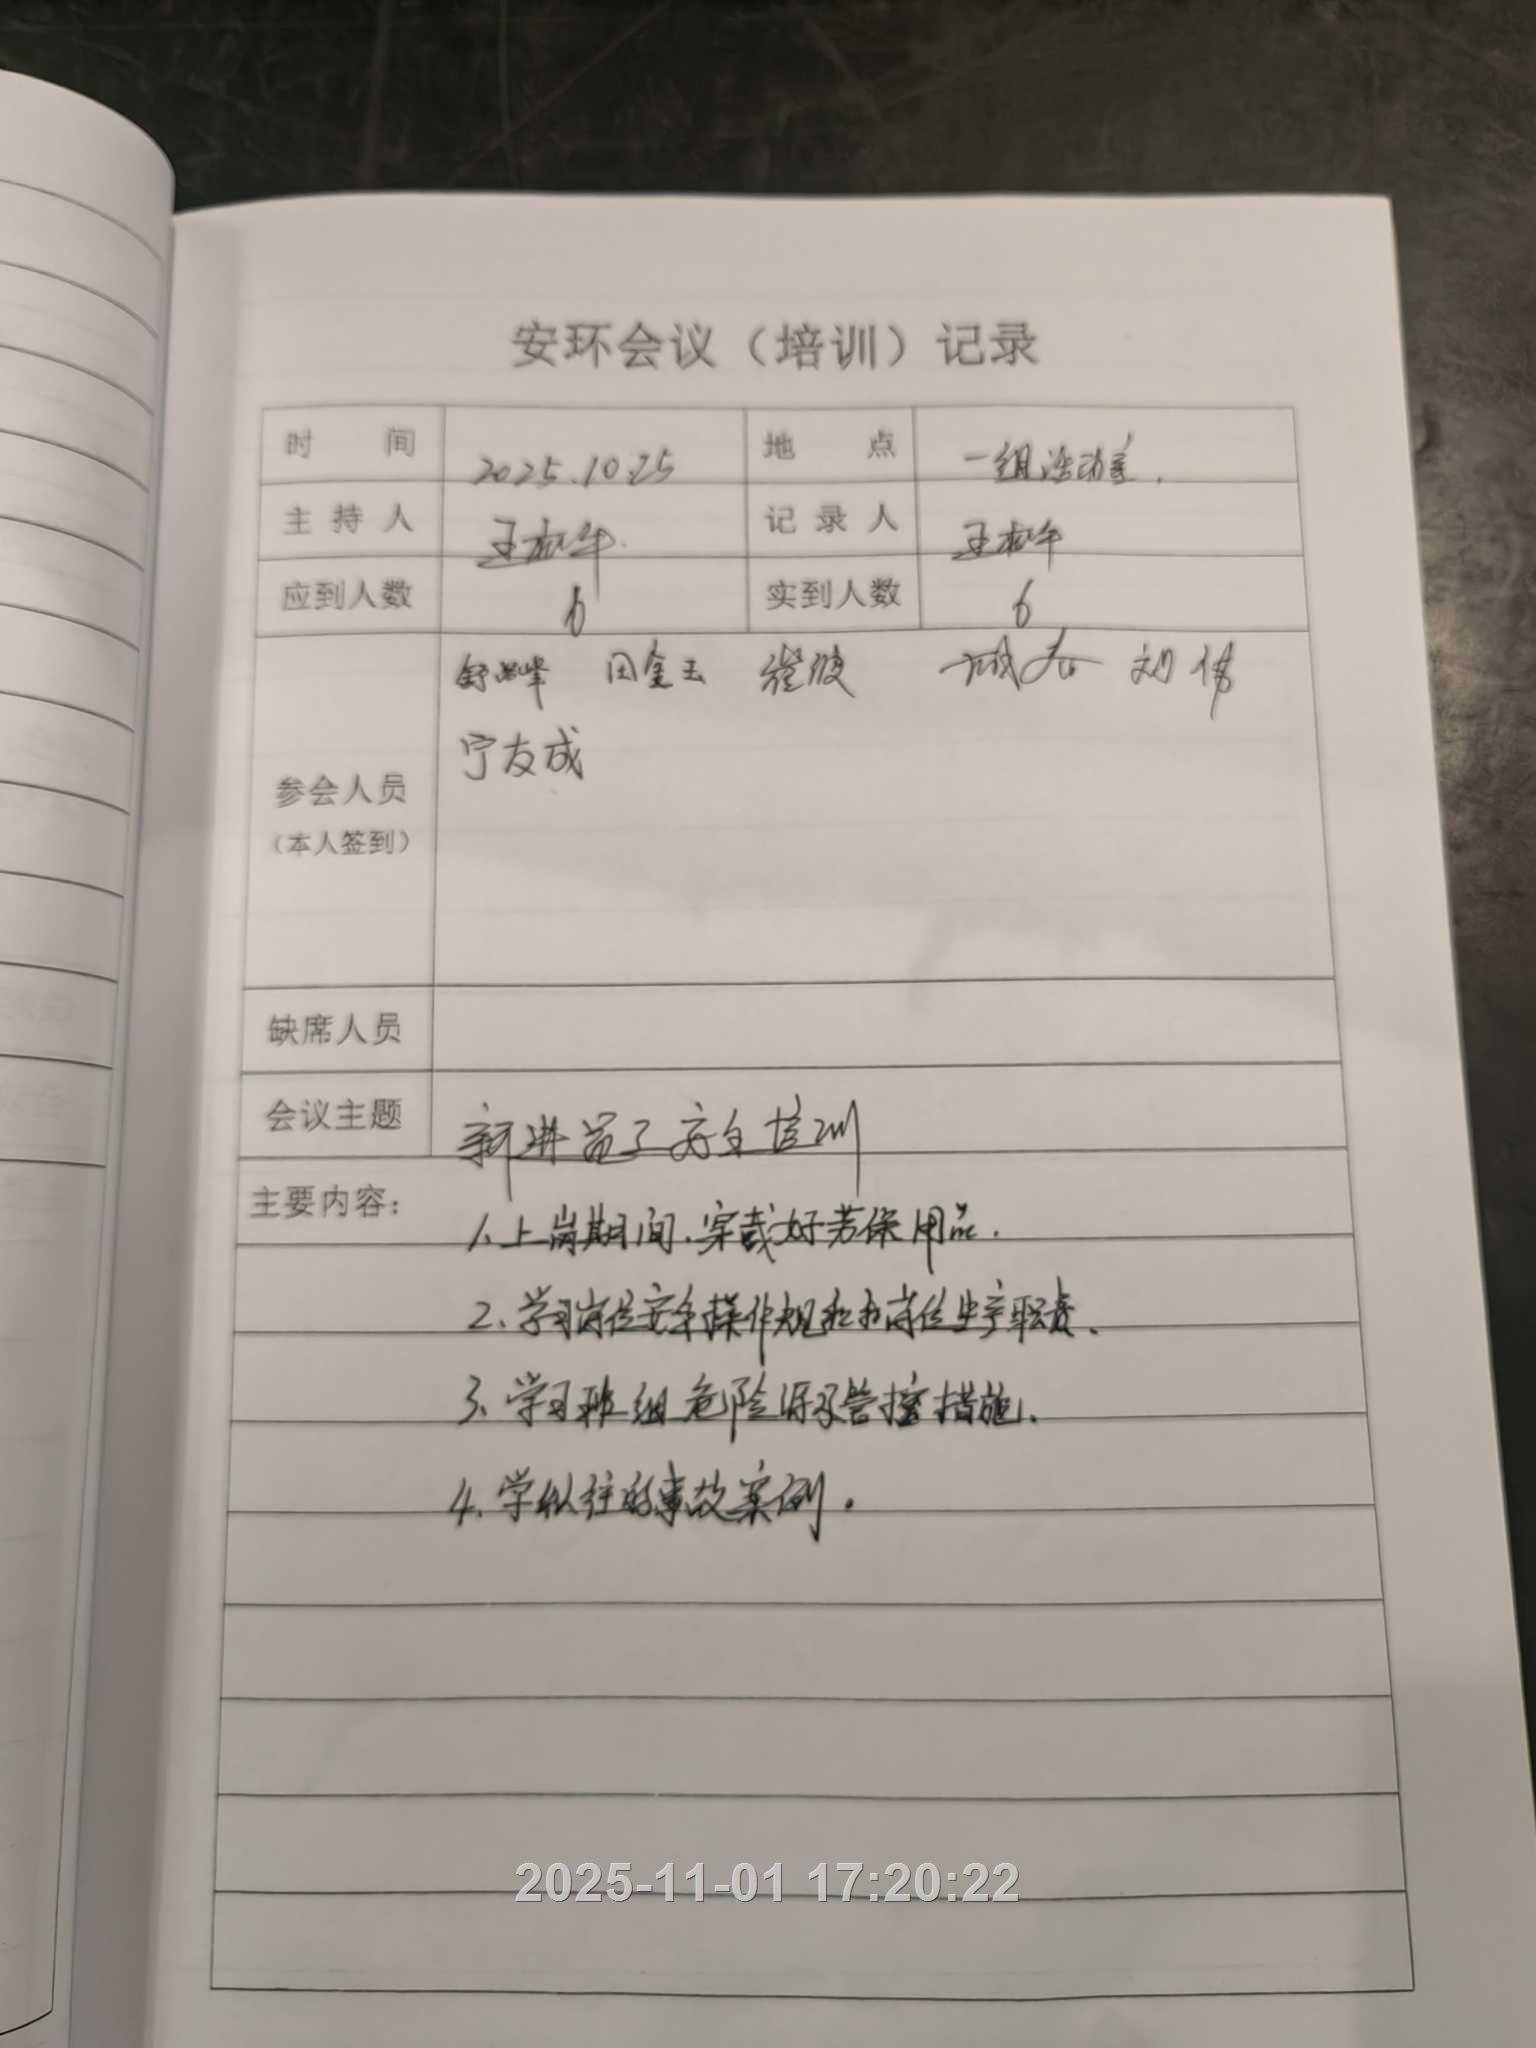 安环会议（培训）记录
时 间 2025.10.25 地 点 一组活动室.
主持人 王 记录人 王
应到人数 6 实到人数 6
田金玉 刘伟
宁友成
参会人员
（本人签到）
缺席人员
会议主题 新进员工安全培训
主要内容：
1.上岗期间.穿戴好劳保用品.
2.学习岗位安全操作规程和岗位生产职责.
3.学习班组危险源及管控措施.
4.学以往的事故案例.
2025-11-01 17:20:22